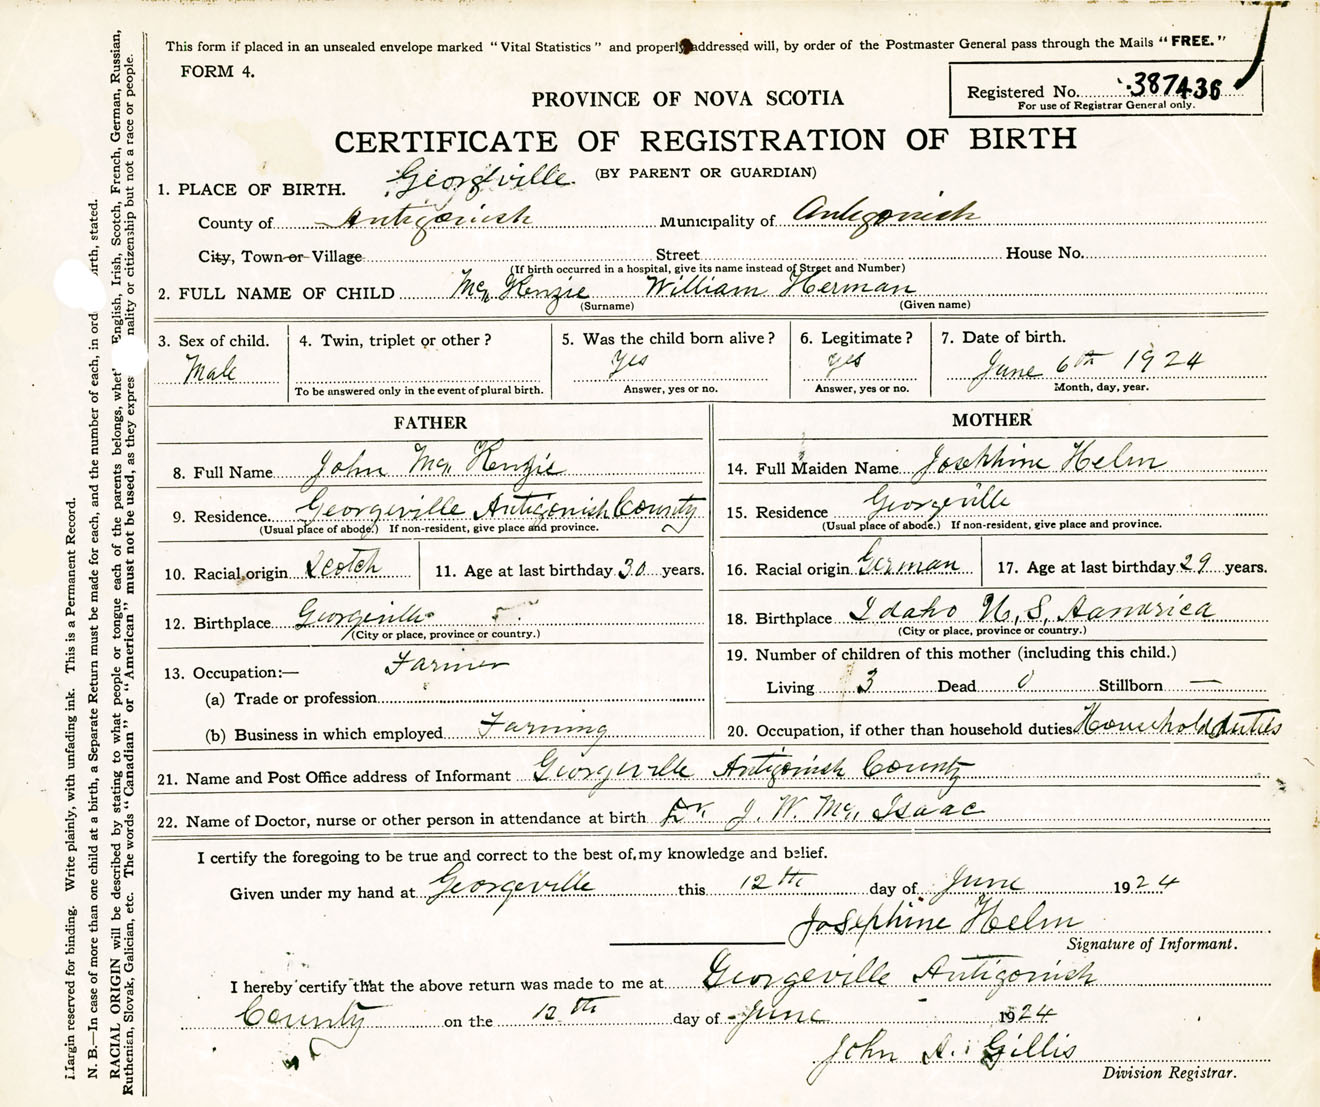 This form if placed in an unsealed envelope marked "Vital Statistics" and properly addressed will, by order of the Postmaster General pass through the Mails "FREE."
FORM 4.
Registered No. 387436
For use of Registrar General only.
PROVINCE OF NOVA SCOTIA
CERTIFICATE OF REGISTRATION OF BIRTH
(BY PARENT OR GUARDIAN)
1. PLACE OF BIRTH. Georgeville
County of Antigonish Municipality of Antigonish
City, Town or Village Street House No.
(If birth occurred in a hospital, give its name instead of Street and Number)
2. FULL NAME OF CHILD Mc Kenzie William Herman
(Surname) (Given name)
3. Sex of child. 4. Twin, triplet or other? 5. Was the child born alive? 6. Legitimate? 7. Date of birth.
Male Yes yes June 6th 1924
To be answered only in the event of plural birth. Answer, yes or no. Answer, yes or no. Month, day, year.
FATHER
8. Full Name John Mc Kenzie
9. Residence Georgeville Antigonish County
(Usual place of abode.) If non-resident, give place and province.
10. Racial origin Scotch 11. Age at last birthday 30 years.
12. Birthplace Georgeville
(City or place, province or country.)
13. Occupation:— Farmer
(a) Trade or profession
(b) Business in which employed Farming
MOTHER
14. Full Maiden Name Josephine Helm
15. Residence Georgeville
(Usual place of abode.) If non-resident, give place and province.
16. Racial origin German 17. Age at last birthday 29 years.
18. Birthplace Idaho U, S, Aamerica
(City or place, province or country.)
19. Number of children of this mother (including this child.)
Living 3 Dead 0 Stillborn —
20. Occupation, if other than household duties Household duties
21. Name and Post Office address of Informant Georgeville Antigonish County
22. Name of Doctor, nurse or other person in attendance at birth Dr. J. W. Mc Isaac
I certify the foregoing to be true and correct to the best of my knowledge and belief.
Given under my hand at Georgeville this 12th day of June 1924
Josephine Helm
Signature of Informant.
I hereby certify that the above return was made to me at Georgeville Antigonish
County on the 12th day of June 1924
John A. Gillis
Division Registrar.
Margin reserved for binding. Write plainly, with unfading ink. This is a Permanent Record.
N. B.—In case of more than one child at a birth, a Separate Return must be made for each, and the number of each, in ord irth, stated.
RACIAL ORIGIN will be described by stating to what people or tongue each of the parents belongs, whet English, Irish, Scotch, French, German, Russian,
Ruthenian, Slovak, Galician, etc. The words "Canadian" or "American" must not be used, as they expres nality or citizenship but not a race or people.